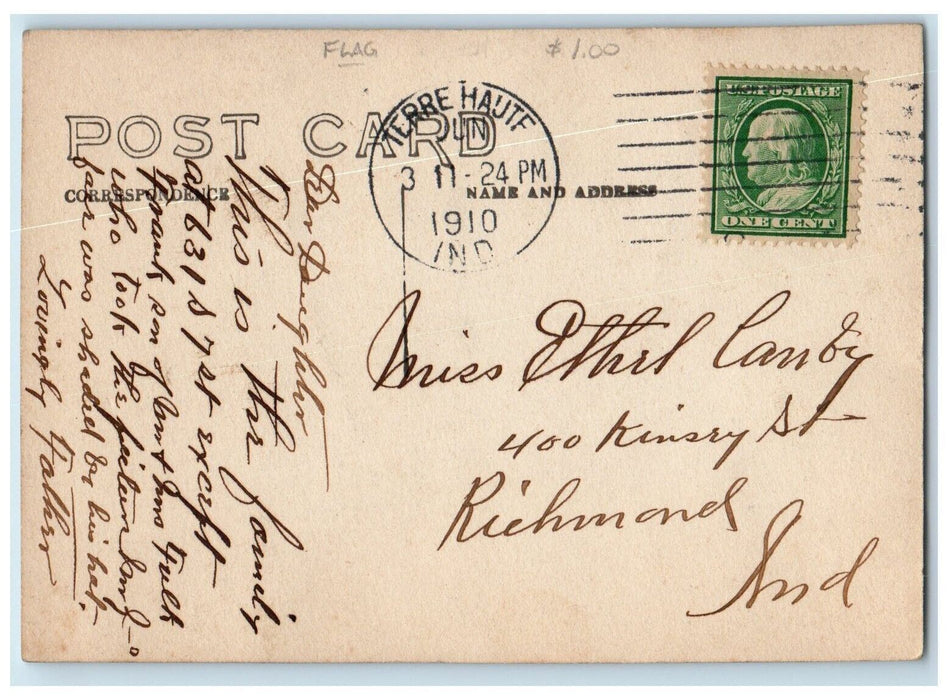 FLAG
$1.00
POST CARD
CORRESPONDENCE
NAME AND ADDRESS
TERRE HAUTE
JUN
3 11-24 PM
1910
IND
U.S. POSTAGE
ONE CENT
Dear Daughter
This is the family
at 631 S 7 st except
Frank son of Mr & Mrs Fulk
who took the picture. My
face was shaded by his hat.
Lovingly Father
Miss Ethel Canby
400 Kinsey St
Richmond
Ind